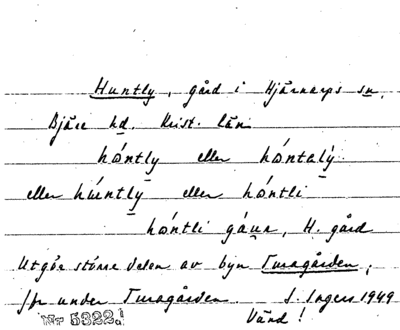 Huntly, gård i Hjärnarps sn.
Bjäre hd. Krist. län
hóntly eller hóntalý
eller húntlý eller hóntli
hóntli gáun, H. gård
Utgör större delen av byn Turagården,
jfr under Turagården. S. Ingers 1949
Nr 5322.1 Vänd!